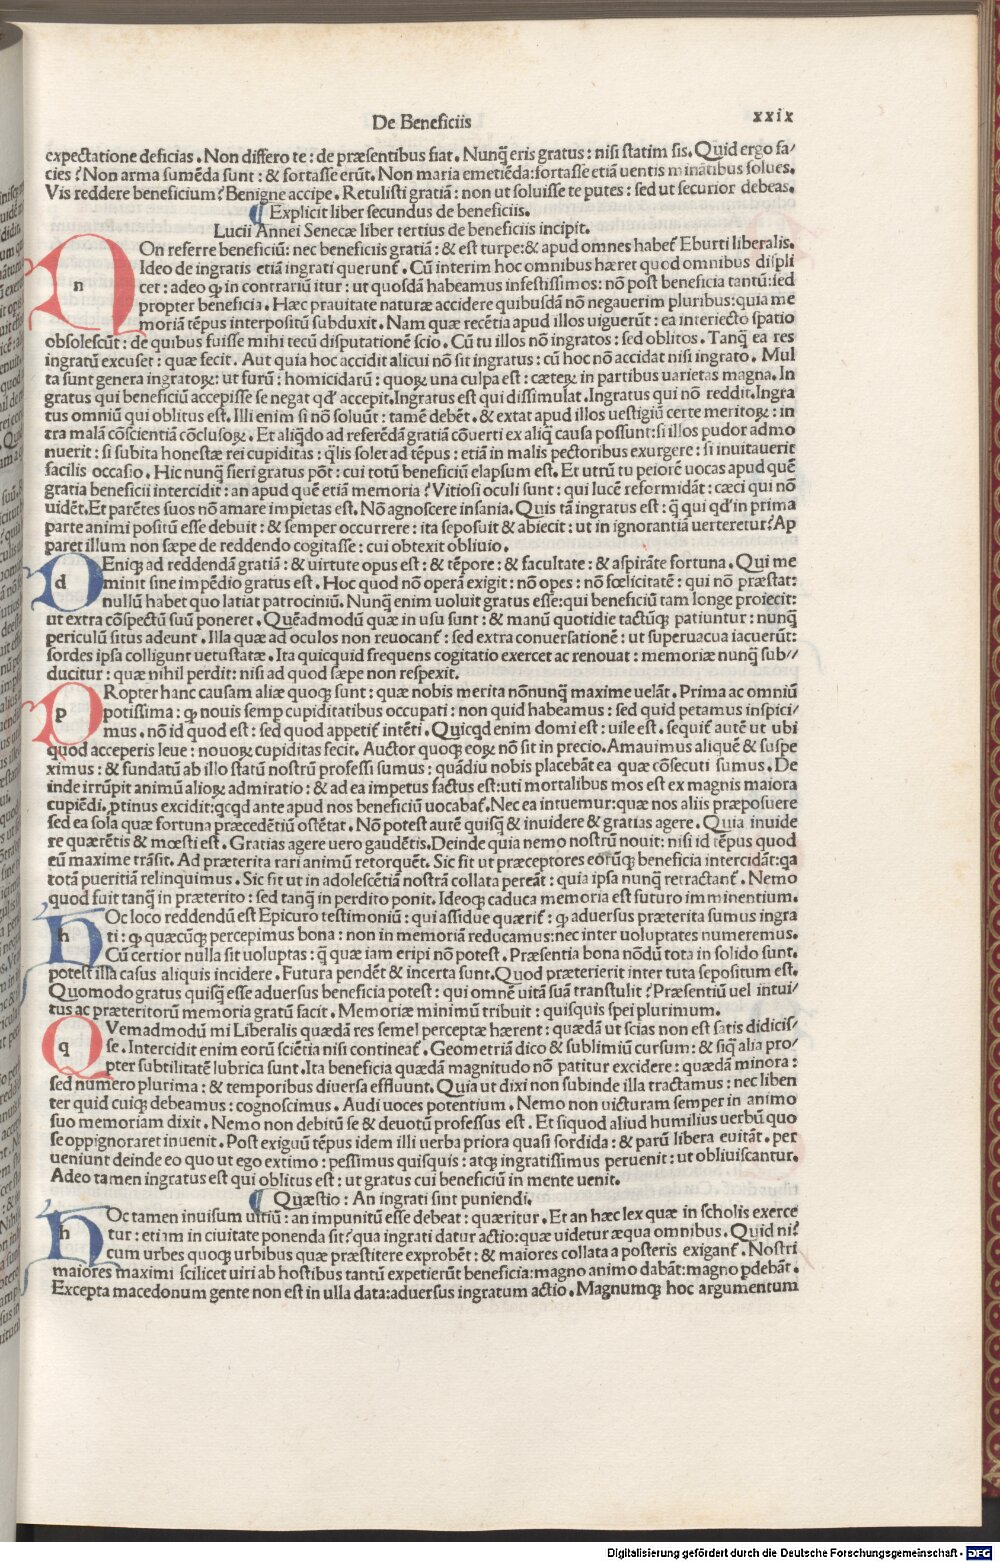 De Beneficiis
xxix
expectatione deficias. Non differo te: de præsentibus fiat. Nunq̃ eris gratus: nisi statim sis. Quid ergo fa/
cies? Non arma sumēda sunt: & fortasse erūt. Non maria emetiēda: fortasse etiā uentis minātibus solues.
Vis reddere beneficium? Benigne accipe. Retulisti gratiā: non ut soluisse te putes: sed ut securior debeas.
¶ Explicit liber secundus de beneficiis.
Lucii Annei Senecæ liber tertius de beneficiis incipit.
n On referre beneficiū: nec beneficiis gratiā: & est turpe: & apud omnes habet᷑ Eburti liberalis.
Ideo de ingratis etiā ingrati querunt᷑. Cū interim hoc omnibus hæret quod omnibus displi
cet: adeo ꝙ in contrariū itur: ut quosdā habeamus infestissimos: nō post beneficia tantū: sed
propter beneficia. Hæc prauitate naturæ accidere quibusdā nō negauerim pluribus: quia me
moriā tēpus interpositū subduxit. Nam quæ recētia apud illos uiguerūt: ea interiecto spatio
obsolescūt: de quibus fuisse mihi tecū disputationē scio. Cū tu illos nō ingratos: sed oblitos. Tanq̃ ea res
ingratū excuset: quæ fecit. Aut quia hoc accidit alicui nō sit ingratus: cū hoc nō accidat nisi ingrato. Mul
ta sunt genera ingratoꝝ: ut furū: homicidarū: quoꝝ una culpa est: cæteꝝ in partibus uarietas magna. In
gratus qui beneficiū accepisse se negat qd' accepit. Ingratus est qui dissimulat. Ingratus qui nō reddit. Ingra
tus omniū qui oblitus est. Illi enim si nō soluūt: tamē debēt. & extat apud illos uestigiū certe meritoꝝ: in
tra malā cōscientiā cōclusoꝝ. Et aliq̇do ad referēdā gratiā cōuerti ex aliq̃ causa possunt: si illos pudor admo
nuerit: si subita honestæ rei cupiditas: q̃lis solet ad tēpus: etiā in malis pectoribus exurgere: si inuitauerit
facilis occasio. Hic nunq̃ fieri gratus pōt: cui totū beneficiū elapsum est. Et utrū tu peiorē uocas apud quē
gratia beneficii intercidit: an apud quē etiā memoria? Vitiosi oculi sunt: qui lucē reformidāt: cæci qui nō
uidēt. Et parētes suos nō amare impietas est. Nō agnoscere insania. Quis tā ingratus est: q̃ qui qd' in prima
parte animi positū esse debuit: & semper occurrere: ita seposuit & abiecit: ut in ignorantiā uerteretur? Ap
paret illum non sæpe de reddendo cogitasse: cui obtexit obliuio.
d Eniqꝫ ad reddendā gratiā: & uirtute opus est: & tēpore: & facultate: & aspirāte fortuna. Qui me
minit sine impēdio gratus est. Hoc quod nō operā exigit: nō opes: nō fœlicitatē: qui nō præstat:
nullū habet quo latiat patrociniū. Nunq̃ enim uoluit gratus esse: qui beneficiū tam longe proiecit:
ut extra cōspectū suū poneret. Quēadmodū quæ in usu sunt: & manū quotidie tactūqꝫ patiuntur: nunq̃
periculū situs adeunt. Illa quæ ad oculos non reuocant᷑: sed extra conuersationē: ut superuacua iacuerūt:
sordes ipsa colligunt uetustatæ. Ita quicquid frequens cogitatio exercet ac renouat: memoriæ nunq̃ sub//
ducitur: quæ nihil perdit: nisi ad quod sæpe non respexit.
p Ropter hanc causam aliæ quoqꝫ sunt: quæ nobis merita nōnunq̃ maxime uelāt. Prima ac omniū
potissima: ꝙ nouis semꝑ cupiditatibus occupati: non quid habeamus: sed quid petamus inspici/
mus. nō id quod est: sed quod appetit᷑ intēti. Quicq̇d enim domi est: uile est. sequit᷑ autē ut ubi
quod acceperis leue: nouoꝝ cupiditas fecit. Auctor quoqꝫ eoꝝ nō sit in precio. Amauimus aliquē & suspe
ximus: & fundatū ab illo statū nostrū professi sumus: quādiu nobis placebāt ea quæ cōsecuti sumus. De
inde irrūpit animū alioꝝ admiratio: & ad ea impetus factus est: uti mortalibus mos est ex magnis maiora
cupiēdi. ꝓtinus excidit: q̇cq̇d ante apud nos beneficiū uocabat᷑. Nec ea intuemur: quæ nos aliis præposuere
sed ea sola quæ fortuna præcedētiū ostētat. Nō potest autē quisq̃ & inuidere & gratias agere. Quia inuide
re quærētis & mœsti est. Gratias agere uero gaudētis. Deinde quia nemo nostrū nouit: nisi id tēpus quod
cū maxime trāsit. Ad præterita rari animū retorquēt. Sic fit ut præceptores eorūqꝫ beneficia intercidāt: qa
totā pueritiā relinquimus. Sic fit ut in adolescētiā nostrā collata pereāt: quia ipsa nunq̃ retractant᷑. Nemo
quod fuit tanq̃ in præterito: sed tanq̃ in perdito ponit. Ideoqꝫ caduca memoria est futuro imminentium.
h Oc loco reddendū est Epicuro testimoniū: qui assidue quærit᷑: ꝙ aduersus præterita sumus ingra
ti: ꝙ quæcūqꝫ percepimus bona: non in memoriā reducamus: nec inter uoluptates numeremus.
Cū certior nulla sit uoluptas: q̃ quæ iam eripi nō potest. Præsentia bona nōdū tota in solido sunt.
potest illa casus aliquis incidere. Futura pendēt & incerta sunt. Quod præterierit inter tuta sepositum est.
Quomodo gratus quisq̃ esse aduersus beneficia potest: qui omnē uitā suā transtulit? Præsentiū uel intui/
tus ac præteritorū memoria gratū facit. Memoriæ minimū tribuit: quisquis spei plurimum.
q Vemadmodū mi Liberalis quædā res semel perceptæ hærent: quædā ut scias non est satis didicis/
se. Intercidit enim eorū sciētia nisi contineat᷑. Geometriā dico & sublimiū cursum: & siq̃ alia pro/
pter subtilitatē lubrica sunt. Ita beneficia quædā magnitudo nō patitur excidere: quædā minora:
sed numero plurima: & temporibus diuersa effluunt. Quia ut dixi non subinde illa tractamus: nec liben
ter quid cuiqꝫ debeamus: cognoscimus. Audi uoces potentium. Nemo non uicturam semper in animo
suo memoriam dixit. Nemo non debitū se & deuotū professus est. Et siquod aliud humilius uerbū quo
se oppignoraret inuenit. Post exiguū tēpus idem illi uerba priora quasi sordida: & parū libera euitāt. per
ueniunt deinde eo quo ut ego extimo: pessimus quisquis: atqꝫ ingratissimus peruenit: ut obliuiscantur.
Adeo tamen ingratus est qui oblitus est: ut gratus cui beneficiū in mente uenit.
¶ Quæstio: An ingrati sint puniendi.
h Oc tamen inuisum uitiū: an impunitū esse debeat: quæritur. Et an hæc lex quæ in scholis exerce
tur: etiam in ciuitate ponenda sit? qua ingrati datur actio: quæ uidetur æqua omnibus. Quid ni?
cum urbes quoqꝫ urbibus quæ præstitere exprobēt: & maiores collata a posteris exigant᷑. Nostri
maiores maximi scilicet uiri ab hostibus tantū expetierūt beneficia: magno animo dabāt: magno ꝑdebāt.
Excepta macedonum gente non est in ulla data: aduersus ingratum actio. Magnumqꝫ hoc argumentum
Digitalisierung gefördert durch die Deutsche Forschungsgemeinschaft - DFG